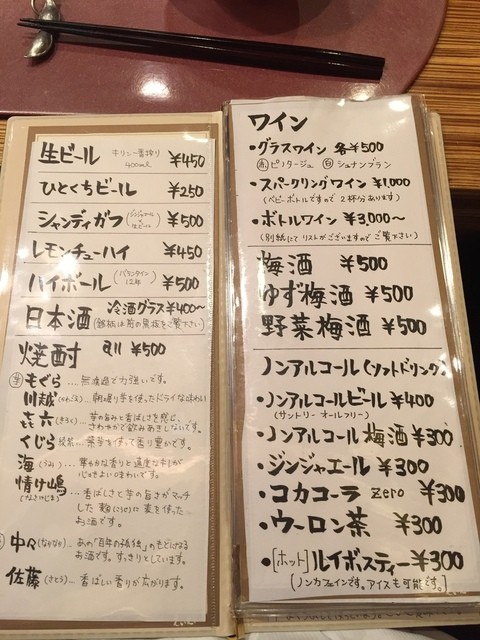 生ビール キリン一番搾り 400ml ¥450
ひとくちビール ¥250
シャンディガフ (ジンジャエール+生ビール) ¥500
レモンチューハイ ¥450
ハイボール (バランタイン12年) ¥500
日本酒 冷酒グラス¥400〜
(銘柄は前の黒板をご覧下さい)
焼酎 各 ¥500
もぐら…無濾過で力強いです。
川越(かわごえ)…朝堀り芋を使ったドライな味わい
㐂六(きろく)…芋の旨みと香ばしさを感じ、
さわやかで飲みあきしないです。
くじら 綾紫…紫芋を使って香り豊かです。
海(うみ)…華やかな香りと適度な
心地よい味わいです。
情け嶋(なさけじま)…香ばしさと芋の旨さがマッチ
した 麹(こうじ)に麦を使った
お酒です。
中々(なかなか)…あの「百年の孤独」のもとになる
お酒です。すっきりとしています。
佐藤(さとう)…香ばしい香りが広がります。
ワイン
・グラスワイン 各¥500
(赤)ピノタージュ (白)シュナンブラン
・スパークリングワイン ¥1,000
(ベビーボトルですので 2杯分あります)
・ボトルワイン ¥3,000〜
(別紙にてリストがございますのでご覧下さい)
梅酒 ¥500
ゆず梅酒 ¥500
野菜梅酒 ¥500
ノンアルコール(ソフトドリンク)
・ノンアルコールビール ¥400
(サントリー オールフリー)
・ノンアルコール梅酒 ¥300
・ジンジャエール ¥300
・コカコーラ zero ¥300
・ウーロン茶 ¥300
・[ホット]ルイボスティー ¥300
(ノンカフェインです。アイスも可能です。)